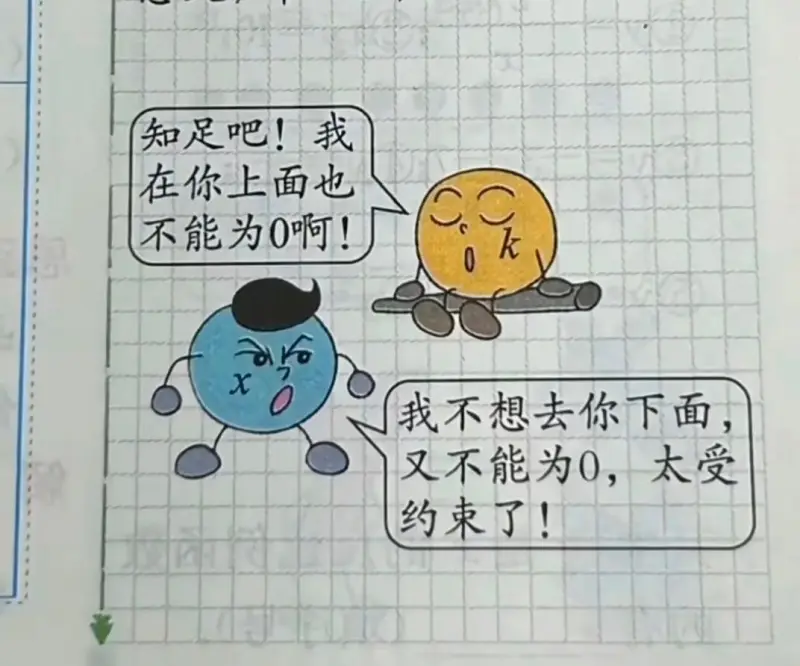 知足吧！我
在你上面也
不能为0啊！
k
x
我不想去你下面，
又不能为0，太受
约束了！